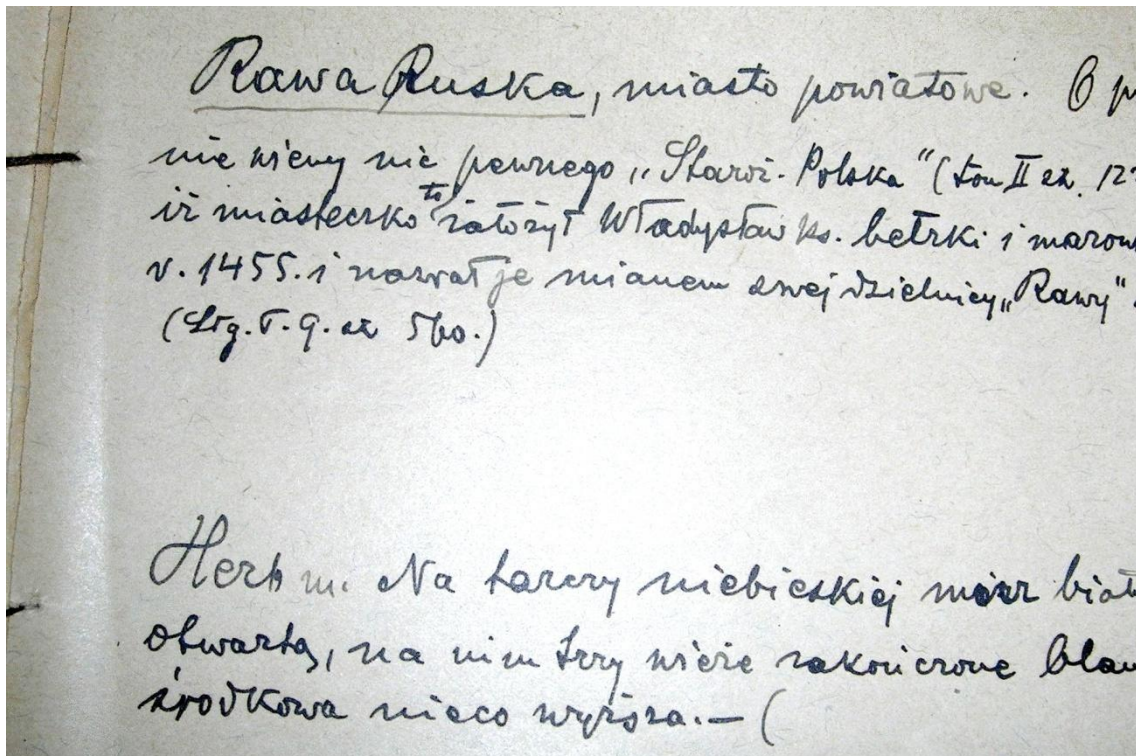 Rawa Ruska, miasto powiatowe. O p
nie wiemy nic pewnego „Staroż. Polska" (tom II str. 12
iż miasteczko to założył Władysław ks. bełzki i mazow
r. 1455. i nazwał je mianem swej dzielnicy „Rawy"
(Słg. T. 9. str 560.)
Herb m. Na tarczy niebieskiej mur biał
otwartą, na nim trzy wieże zakończone blan
środkowa nieco wyższa.— (